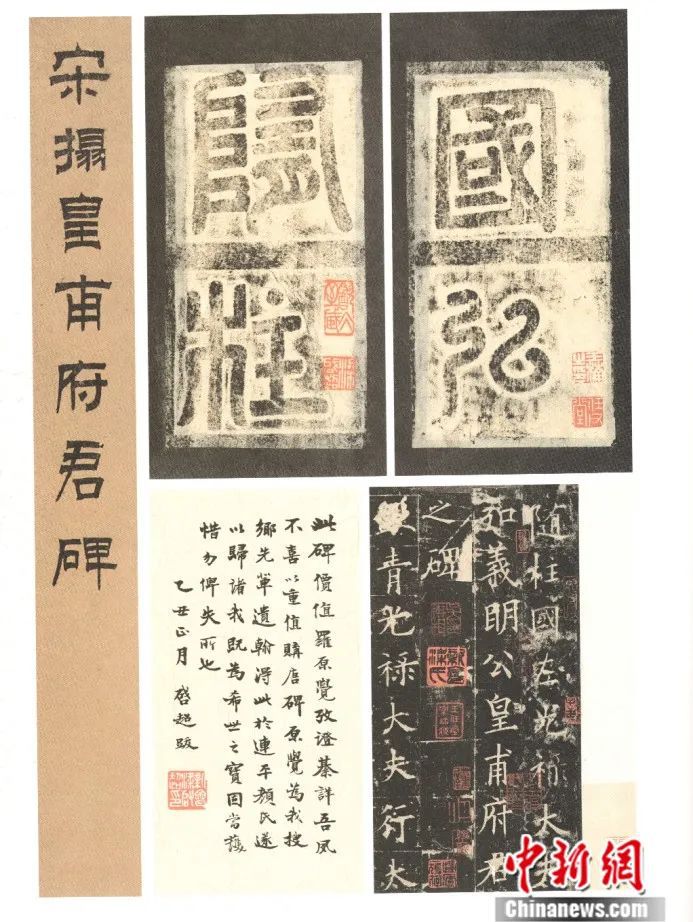 宋搨皇甫府君碑
隨柱
國弘
此碑價值羅原覺攷證綦詳吾夙
不喜以重值購唐碑原覺為我搜
鄉先輩遺翰得此於連平顏氏遂
以歸諸我既為希世之寶固當護
惜勿俾失所也
乙丑正月 啓超跋
随柱國左光祿大
弘義明公皇甫府君
之碑
青光祿大夫行太
中新网
Chinanews.com